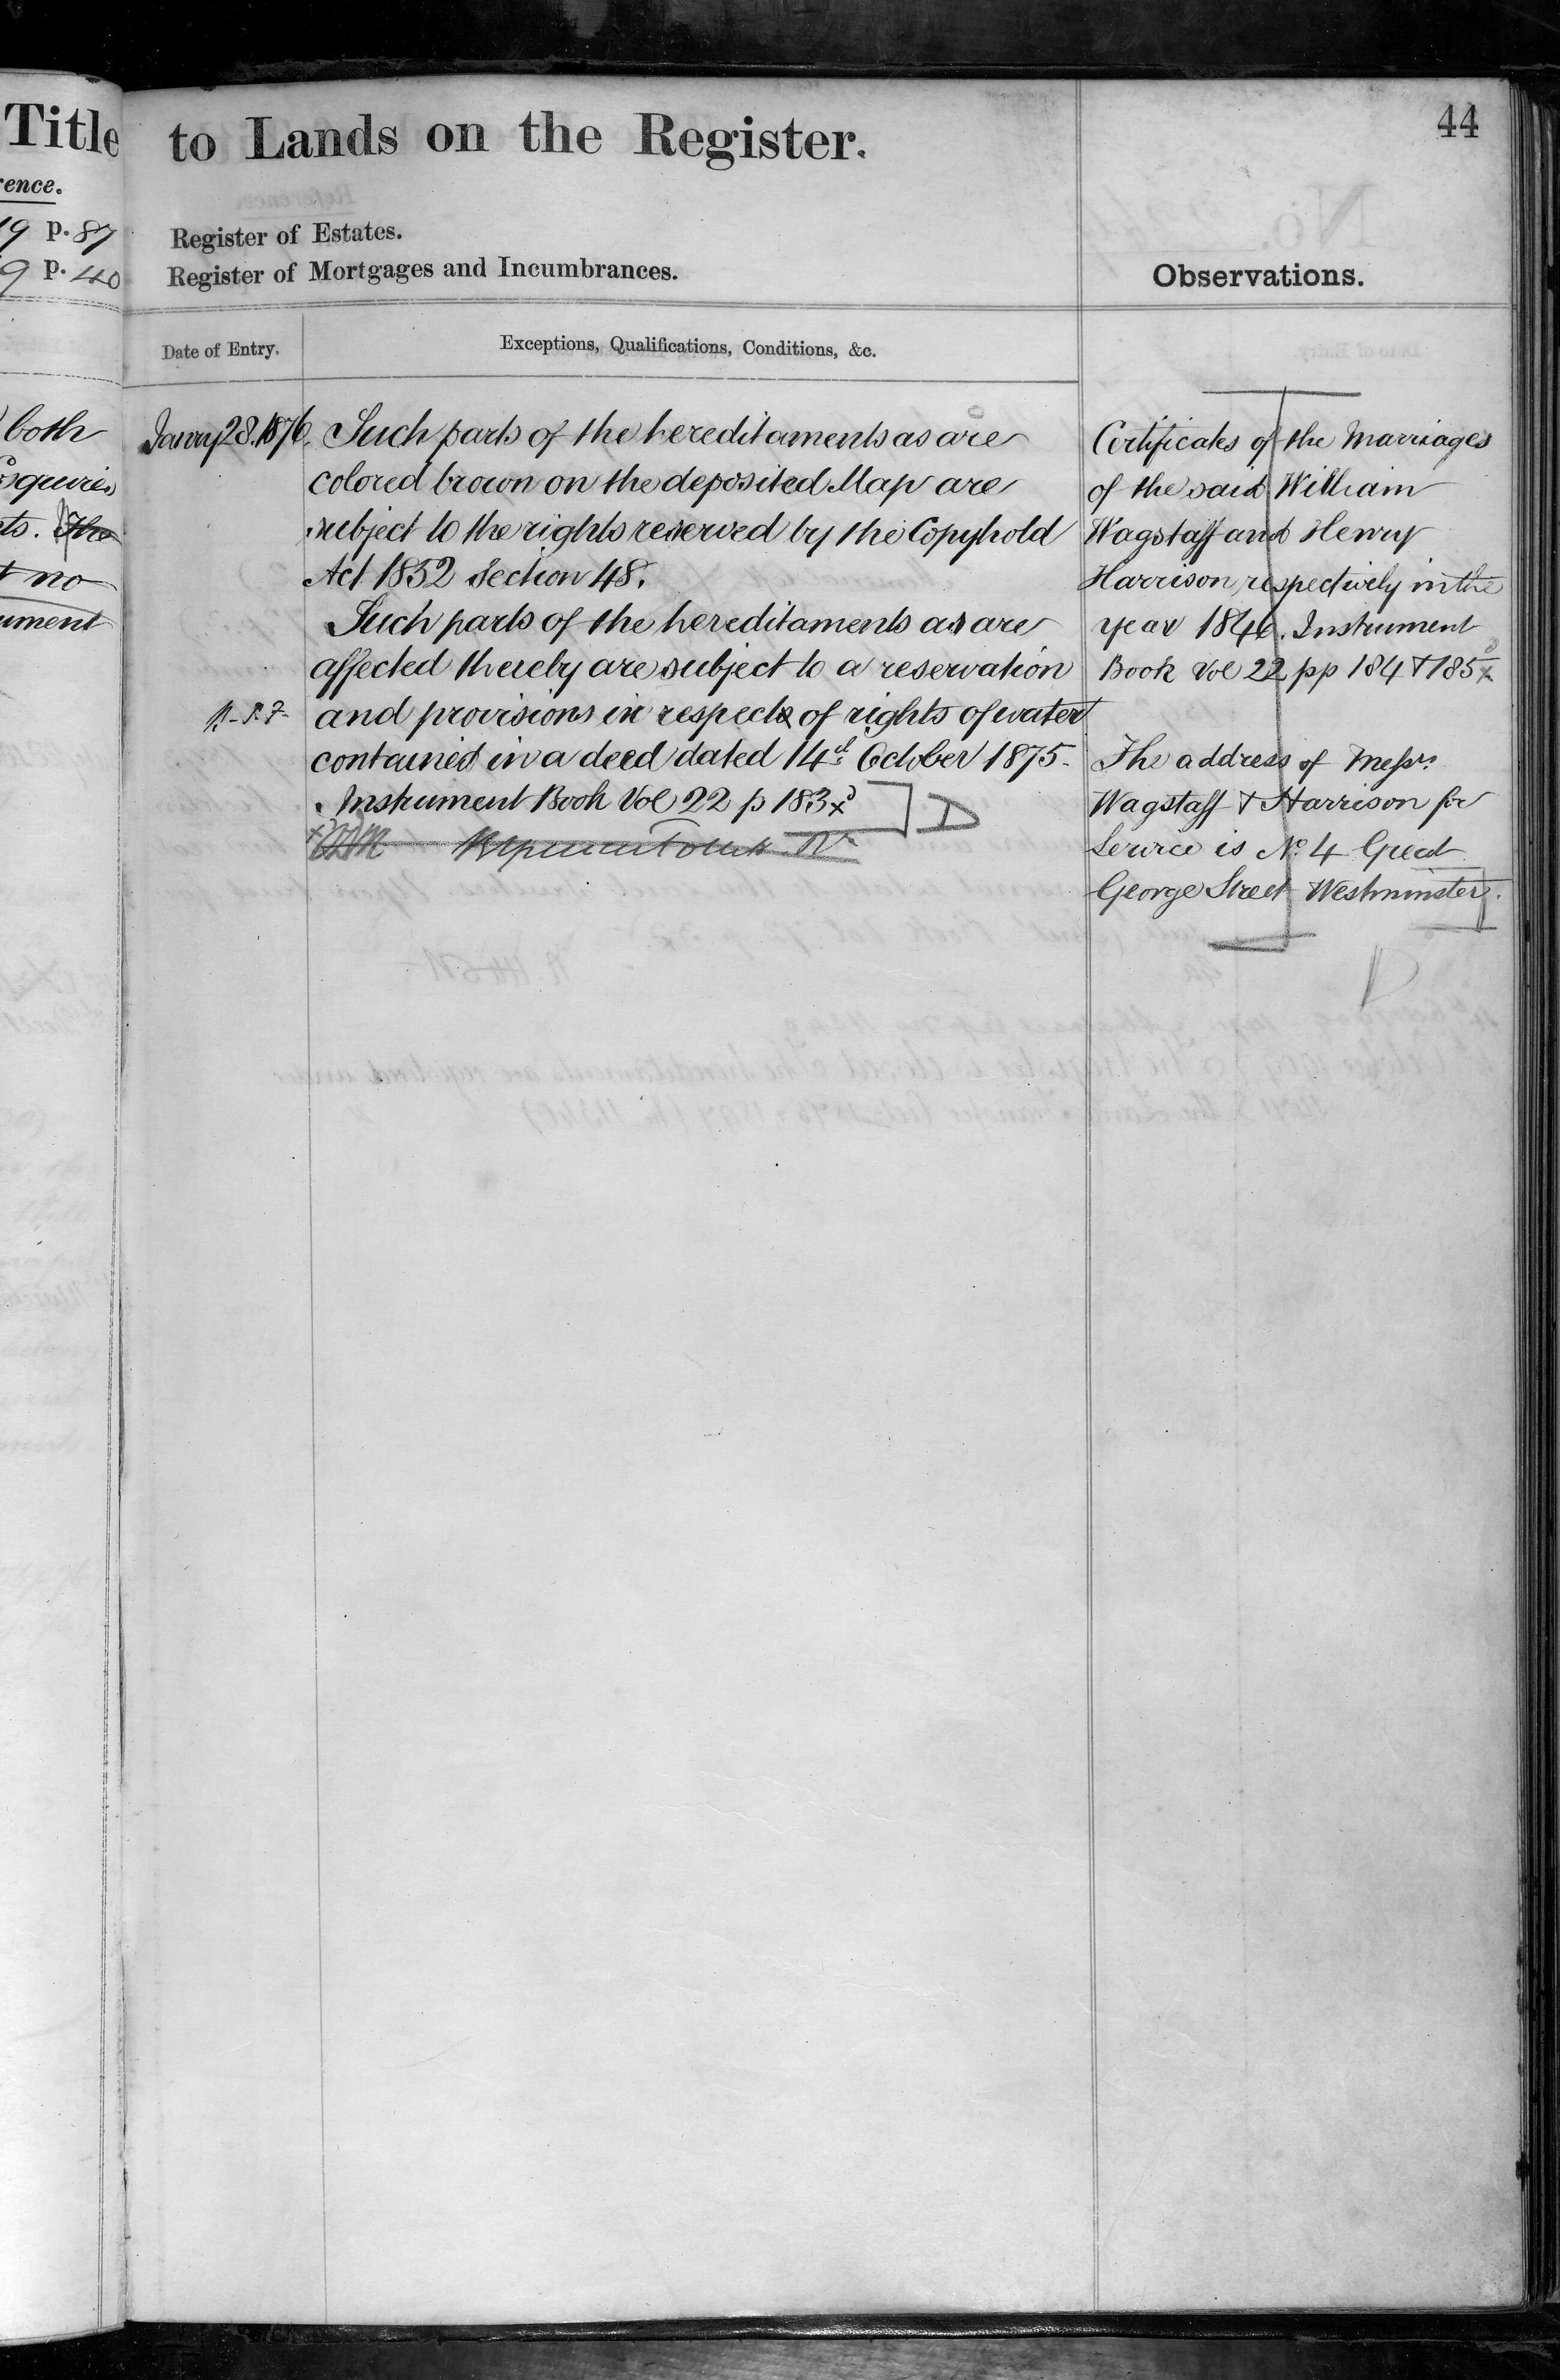 Title
ence.
19 p. 87
9 p. 40
both
squires
ts. The
t no
ument
to Lands on the Register.
44
Register of Estates.
Register of Mortgages and Incumbrances.
Observations.
Date of Entry.
Exceptions, Qualifications, Conditions, &c.
Janry 28. 1876.
Such parts of the hereditaments as are
colored brown on the deposited Map are
subject to the rights reserved by the Copyhold
Act 1852 Section 48.
Such parts of the hereditaments as are
affected thereby are subject to a reservation
and provisions in respect of rights of water
contained in a deed dated 14th October 1875.
Instrument Book Vol 22 p 183 x
D
Certificates of the Marriages
of the said William
Wagstaff and Henry
Harrison respectively in the
year 1846. Instrument
Book Vol 22 pp 184 & 185 x
The address of Messrs
Wagstaff & Harrison for
Service is No 4 Great
George Street Westminster.
D